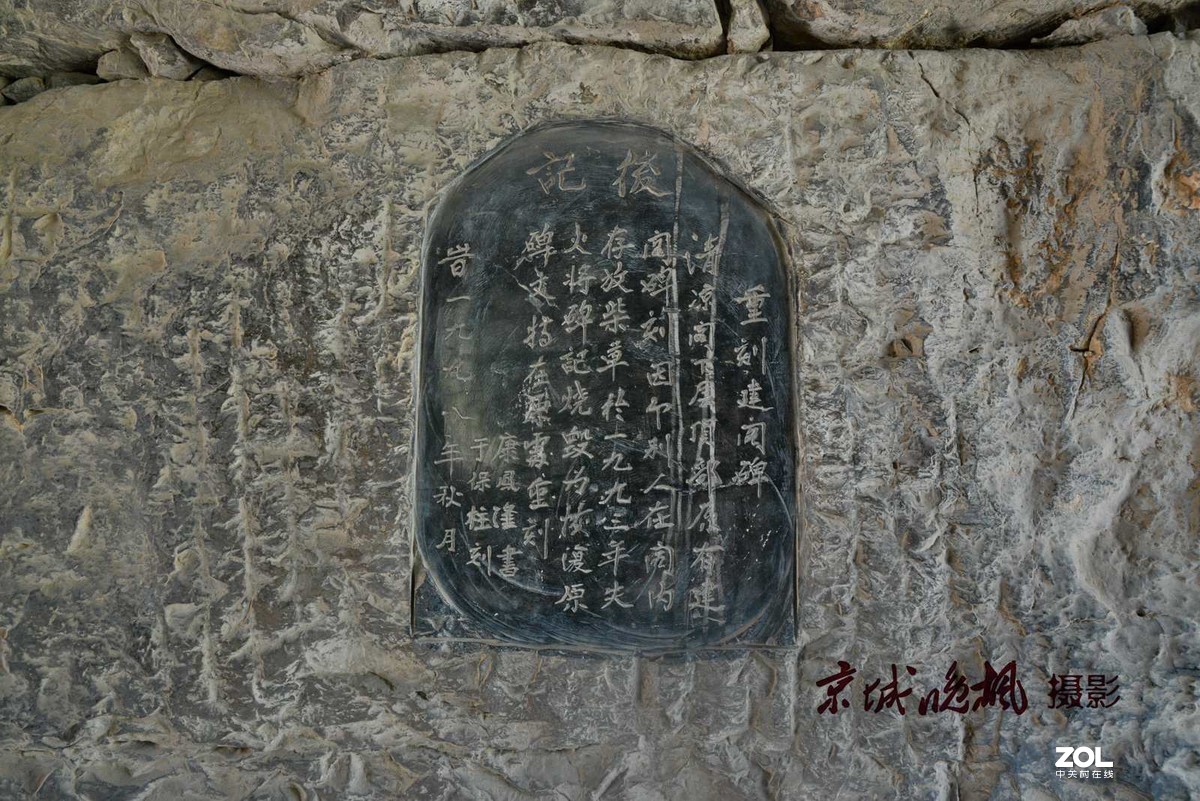 後記
重刻建阁碑
清凉阁下层部原有建
阁碑刻因个别人在阁内
存放柴草於一九九三年失
火将碑記烧毁为恢復原
碑文特在原處重刻
康凤隆書
于保柱刻
旹一九九八年秋月
京城晚枫 摄影
ZOL
中关村在线